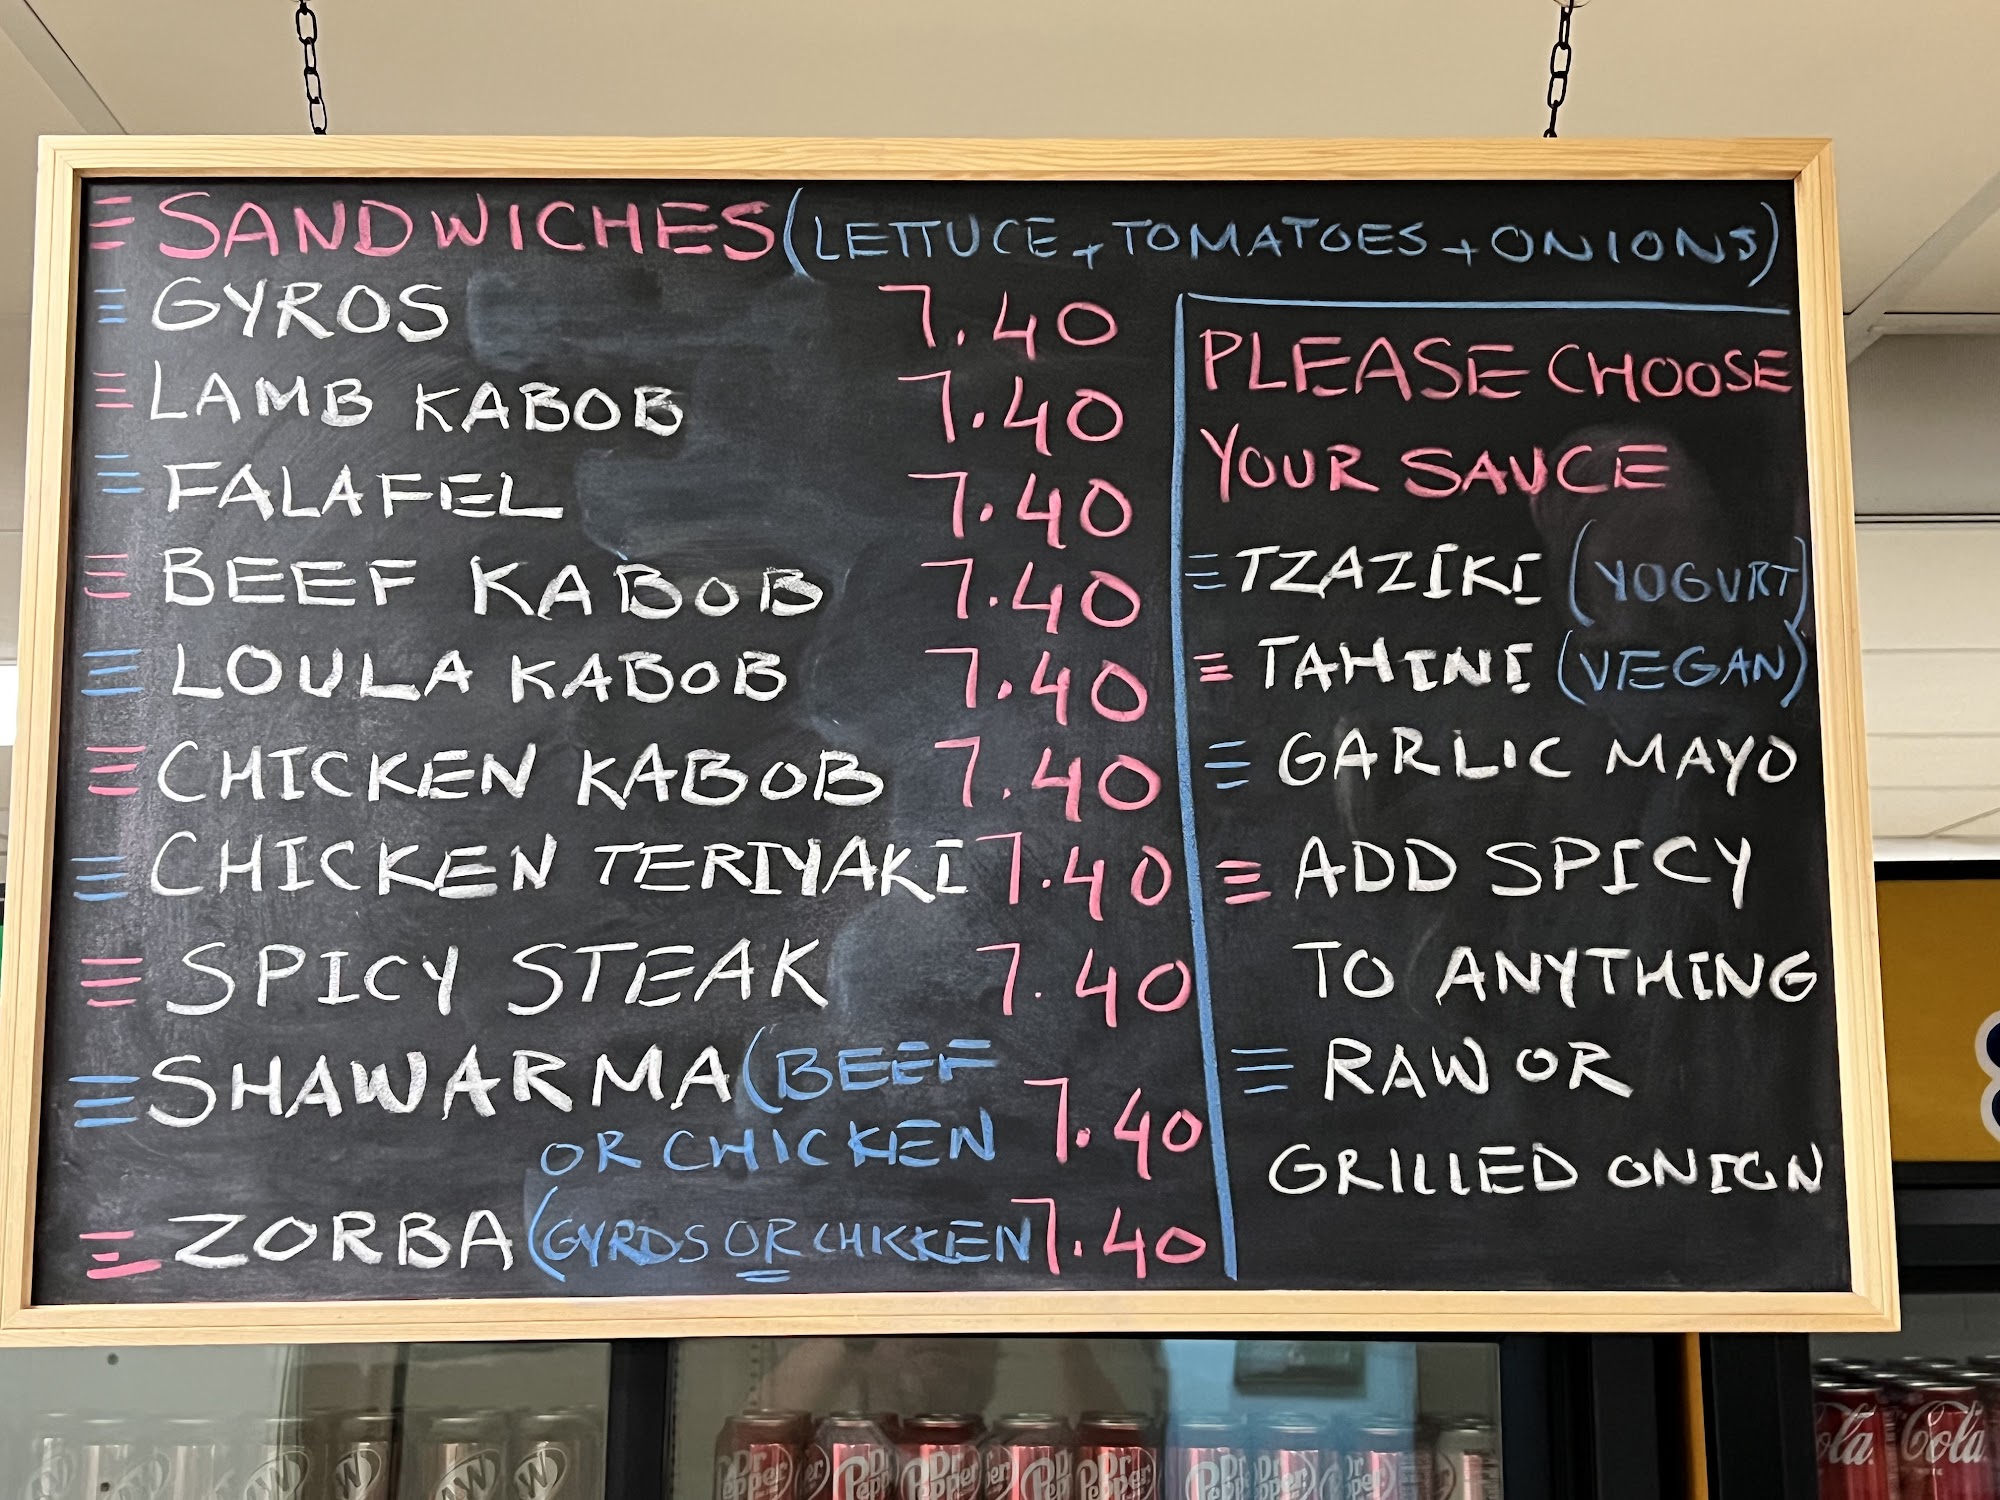 SANDWICHES (LETTUCE + TOMATOES + ONIONS)
GYROS 7.40
LAMB KABOB 7.40
FALAFEL 7.40
BEEF KABOB 7.40
LOULA KABOB 7.40
CHICKEN KABOB 7.40
CHICKEN TERIYAKI 7.40
SPICY STEAK 7.40
SHAWARMA (BEEF
OR CHICKEN 7.40
ZORBA (GYROS OR CHICKEN 7.40
PLEASE CHOOSE
YOUR SAUCE
TZAZIKI (YOGURT)
TAHINI (VEGAN)
GARLIC MAYO
ADD SPICY
TO ANYTHING
RAW OR
GRILLED ONION
A&W
Dr Pepper
Dr Pepper
Dr Pepper
Dr Pepper
Dr Pepper
Cola